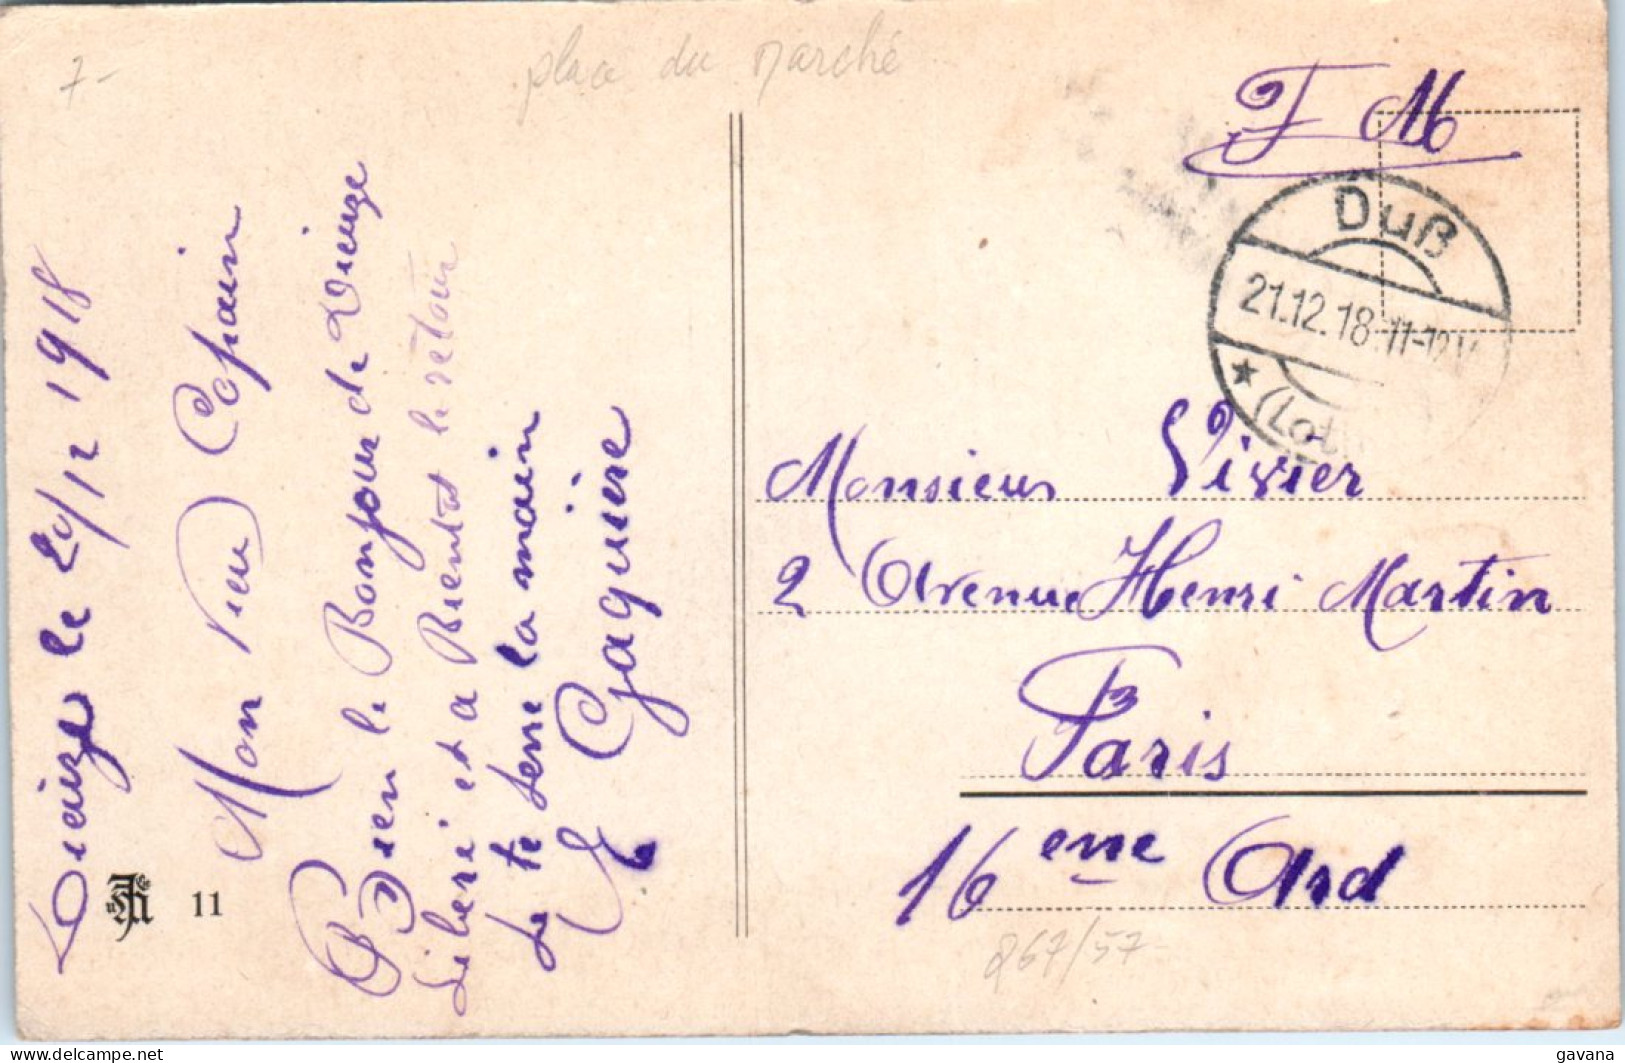 7-
place du Marché
F M
Duß
21.12.18.11-12
(Lot
Dieuze le 20/12 1918
Mon Vieux Copain
Bien le Bonjour de Dieuze
Liberé et a Bientot le retour
Je te serre la main
Gaguière
Monsieur Vivier
2 Avenue Henri Martin
Paris
16 eme Ard
867/57-
11
gavana
www.delcampe.net